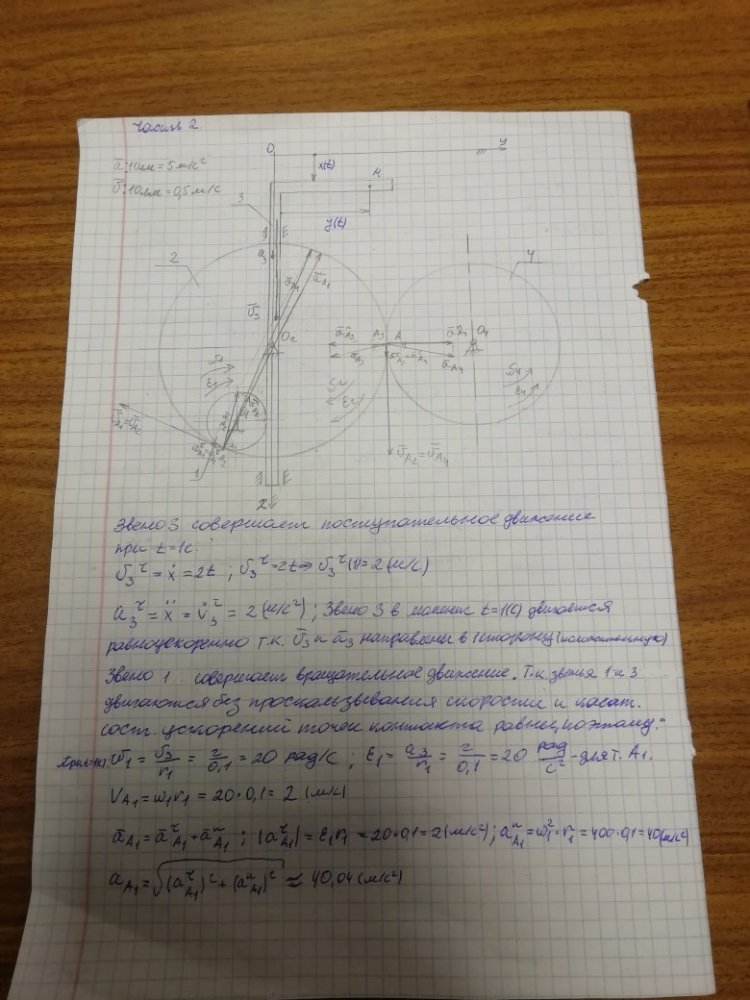 Часть 2.
O
y
ā: 10мм = 5 м/с²
ῡ: 10мм = 0,5 м/с
x(t)
M
3
y(t)
2
4
a₃
ῡ₃
O₂
A
O₄
ῡ_A₂ = ῡ_A₄
1
x
Звено 3 совершает поступательное движение
при t=1с.
v₃^τ = ẋ = 2t ; v₃^τ = 2t ⇒ v₃^τ(1) = 2 (м/с)
a₃^τ = ẍ = v̇₃^τ = 2 (м/с²) ; Звено 3 в момент t=1(с) движется
равноускоренно т.к. ῡ₃ и ā₃ направлены в 1 сторону (положительную)
Звено 1 совершает вращательное движение. Т.к. звенья 1 и 3
двигаются без проскальзывания скорости и касат.
сост. ускорений точек контакта равны, поэтому:
При t=1(с): ω₁ = v₃/r₁ = 2/0,1 = 20 рад/с ; ε₁ = a₃/r₁ = 2/0,1 = 20 рад/с² - для т. A₁.
V_A₁ = ω₁r₁ = 20·0,1 = 2 (м/с)
ā_A₁ = ā^τ_A₁ + ā^n_A₁ ; |a^τ_A₁| = ε₁r₁ = 20·0,1 = 2 (м/с²) ; a^n_A₁ = ω₁²·r₁ = 400·0,1 = 40 (м/с²)
a_A₁ = √((a^τ_A₁)² + (a^n_A₁)²) ≈ 40,04 (м/с²)